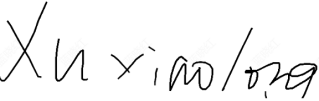 Xu xiaolong